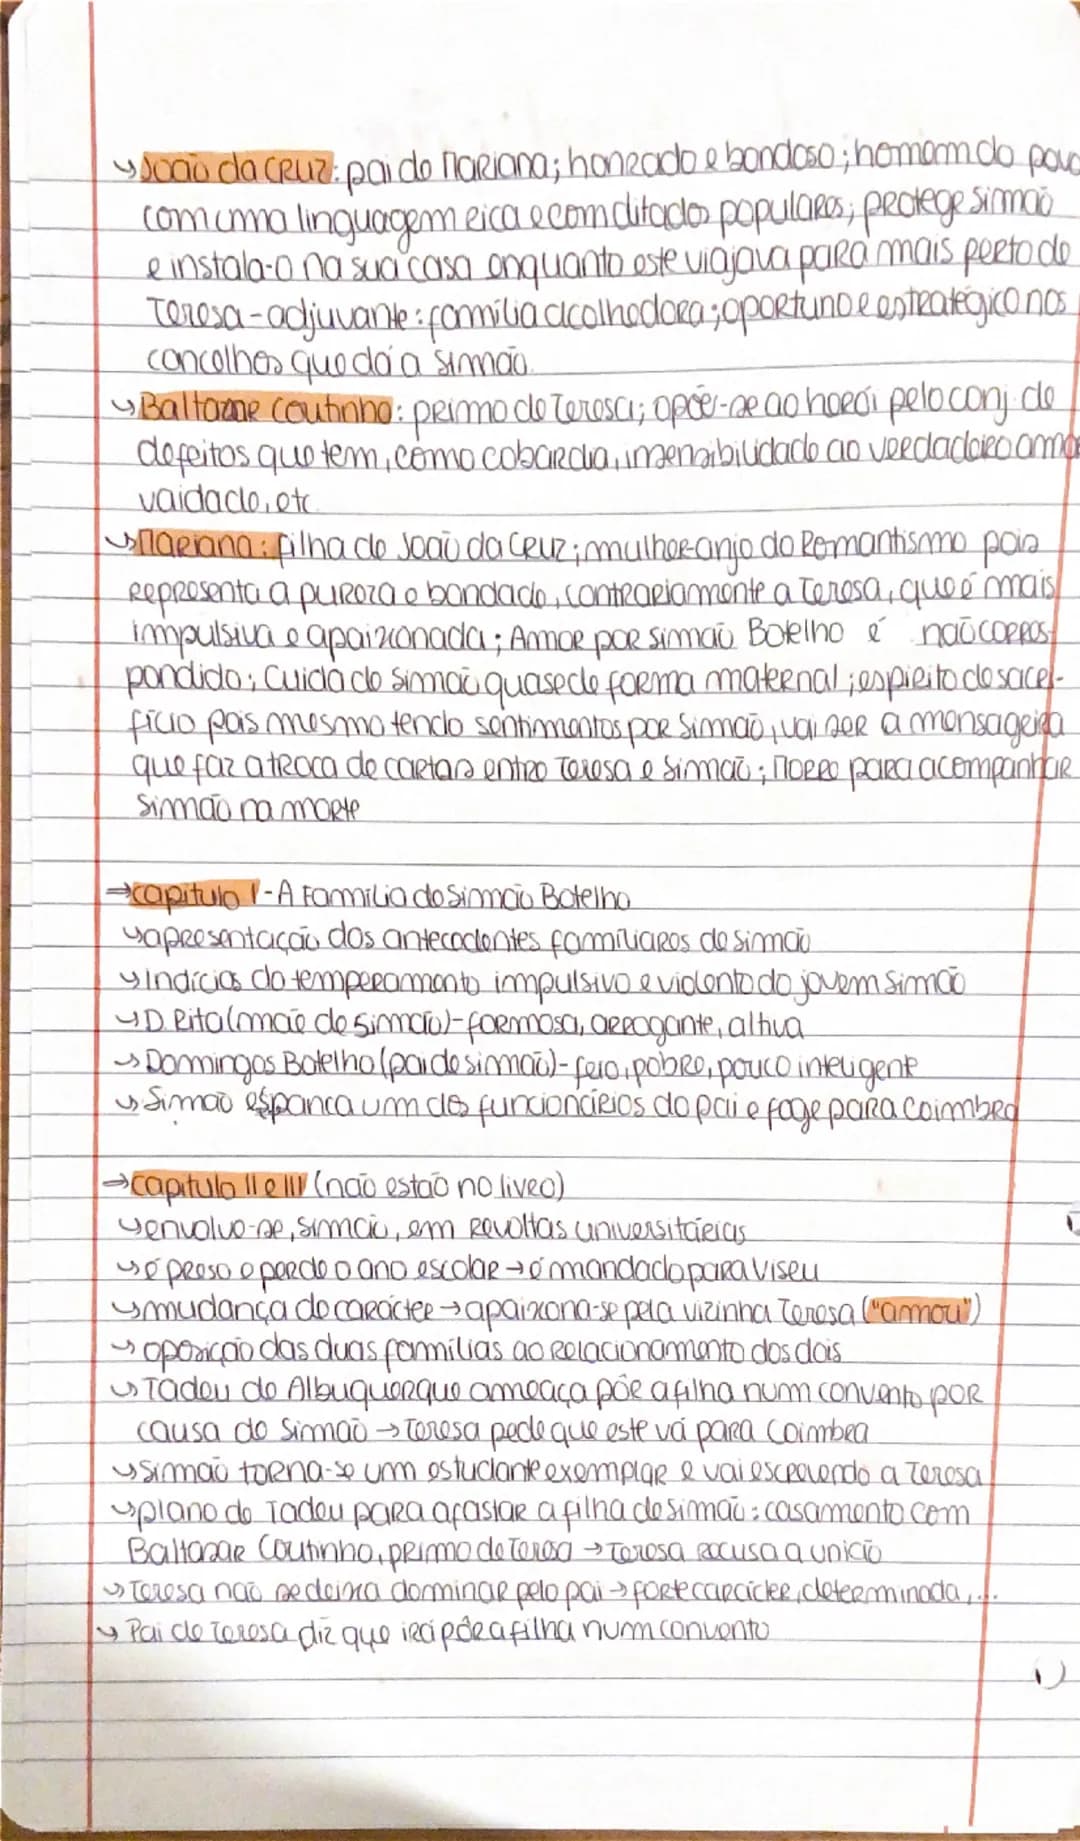 ↳João da Cruz: pai de Mariana; honrado e bondoso; homem do povo
com uma linguagem rica e com ditados populares; protege Simão
e instala-o na sua casa enquanto este viajava para mais perto de
Teresa - adjuvante: família acolhedora; oportuno e estratégico nos
concelhos que dá a Simão.
↳Baltazar Coutinho: primo de Teresa; opõe-se ao herói pelo conj. de
defeitos que tem, como cobardia, insensibilidade ao verdadeiro amor
vaidade, etc.
↳Mariana: filha de João da Cruz; mulher-anjo do Romantismo pois
representa a pureza e bondade, contrariamente a Teresa, que é mais
impulsiva e apaixonada; Amor por Simão Botelho é não corres-
pondido; Cuida de Simão quase de forma maternal; espírito de sacri-
fício pois mesmo tendo sentimentos por Simão, vai ser a mensageira
que faz a troca de cartas entre Teresa e Simão; Morre para acompanhar
Simão na morte
⇒capítulo I - A Família de Simão Botelho
↳apresentação dos antecedentes familiares de Simão
↳Indícios do temperamento impulsivo e violento do jovem Simão
↳D. Rita (mãe de Simão) - formosa, arrogante, altiva
↳Domingos Botelho (pai de Simão) - feio, pobre, pouco inteligente
↳Simão espanca um dos funcionários do pai e foge para Coimbra
⇒capítulo II e III (não estão no livro)
↳envolve-se, Simão, em revoltas universitárias
↳é preso e perde o ano escolar → é mandado para Viseu
↳mudança de carácter → apaixona-se pela vizinha Teresa ("amou")
↳oposição das duas famílias ao relacionamento dos dois
↳Tadeu de Albuquerque ameaça pôr a filha num convento por
causa de Simão → Teresa pede que este vá para Coimbra
↳Simão torna-se um estudante exemplar e vai escrevendo a Teresa
↳plano de Tadeu para afastar a filha de Simão: casamento com
Baltazar Coutinho, primo de Teresa → Teresa recusa a união
↳Teresa não se deixa dominar pelo pai → forte carácter, determinada, ...
↳Pai de Teresa diz que irá pôr a filha num convento